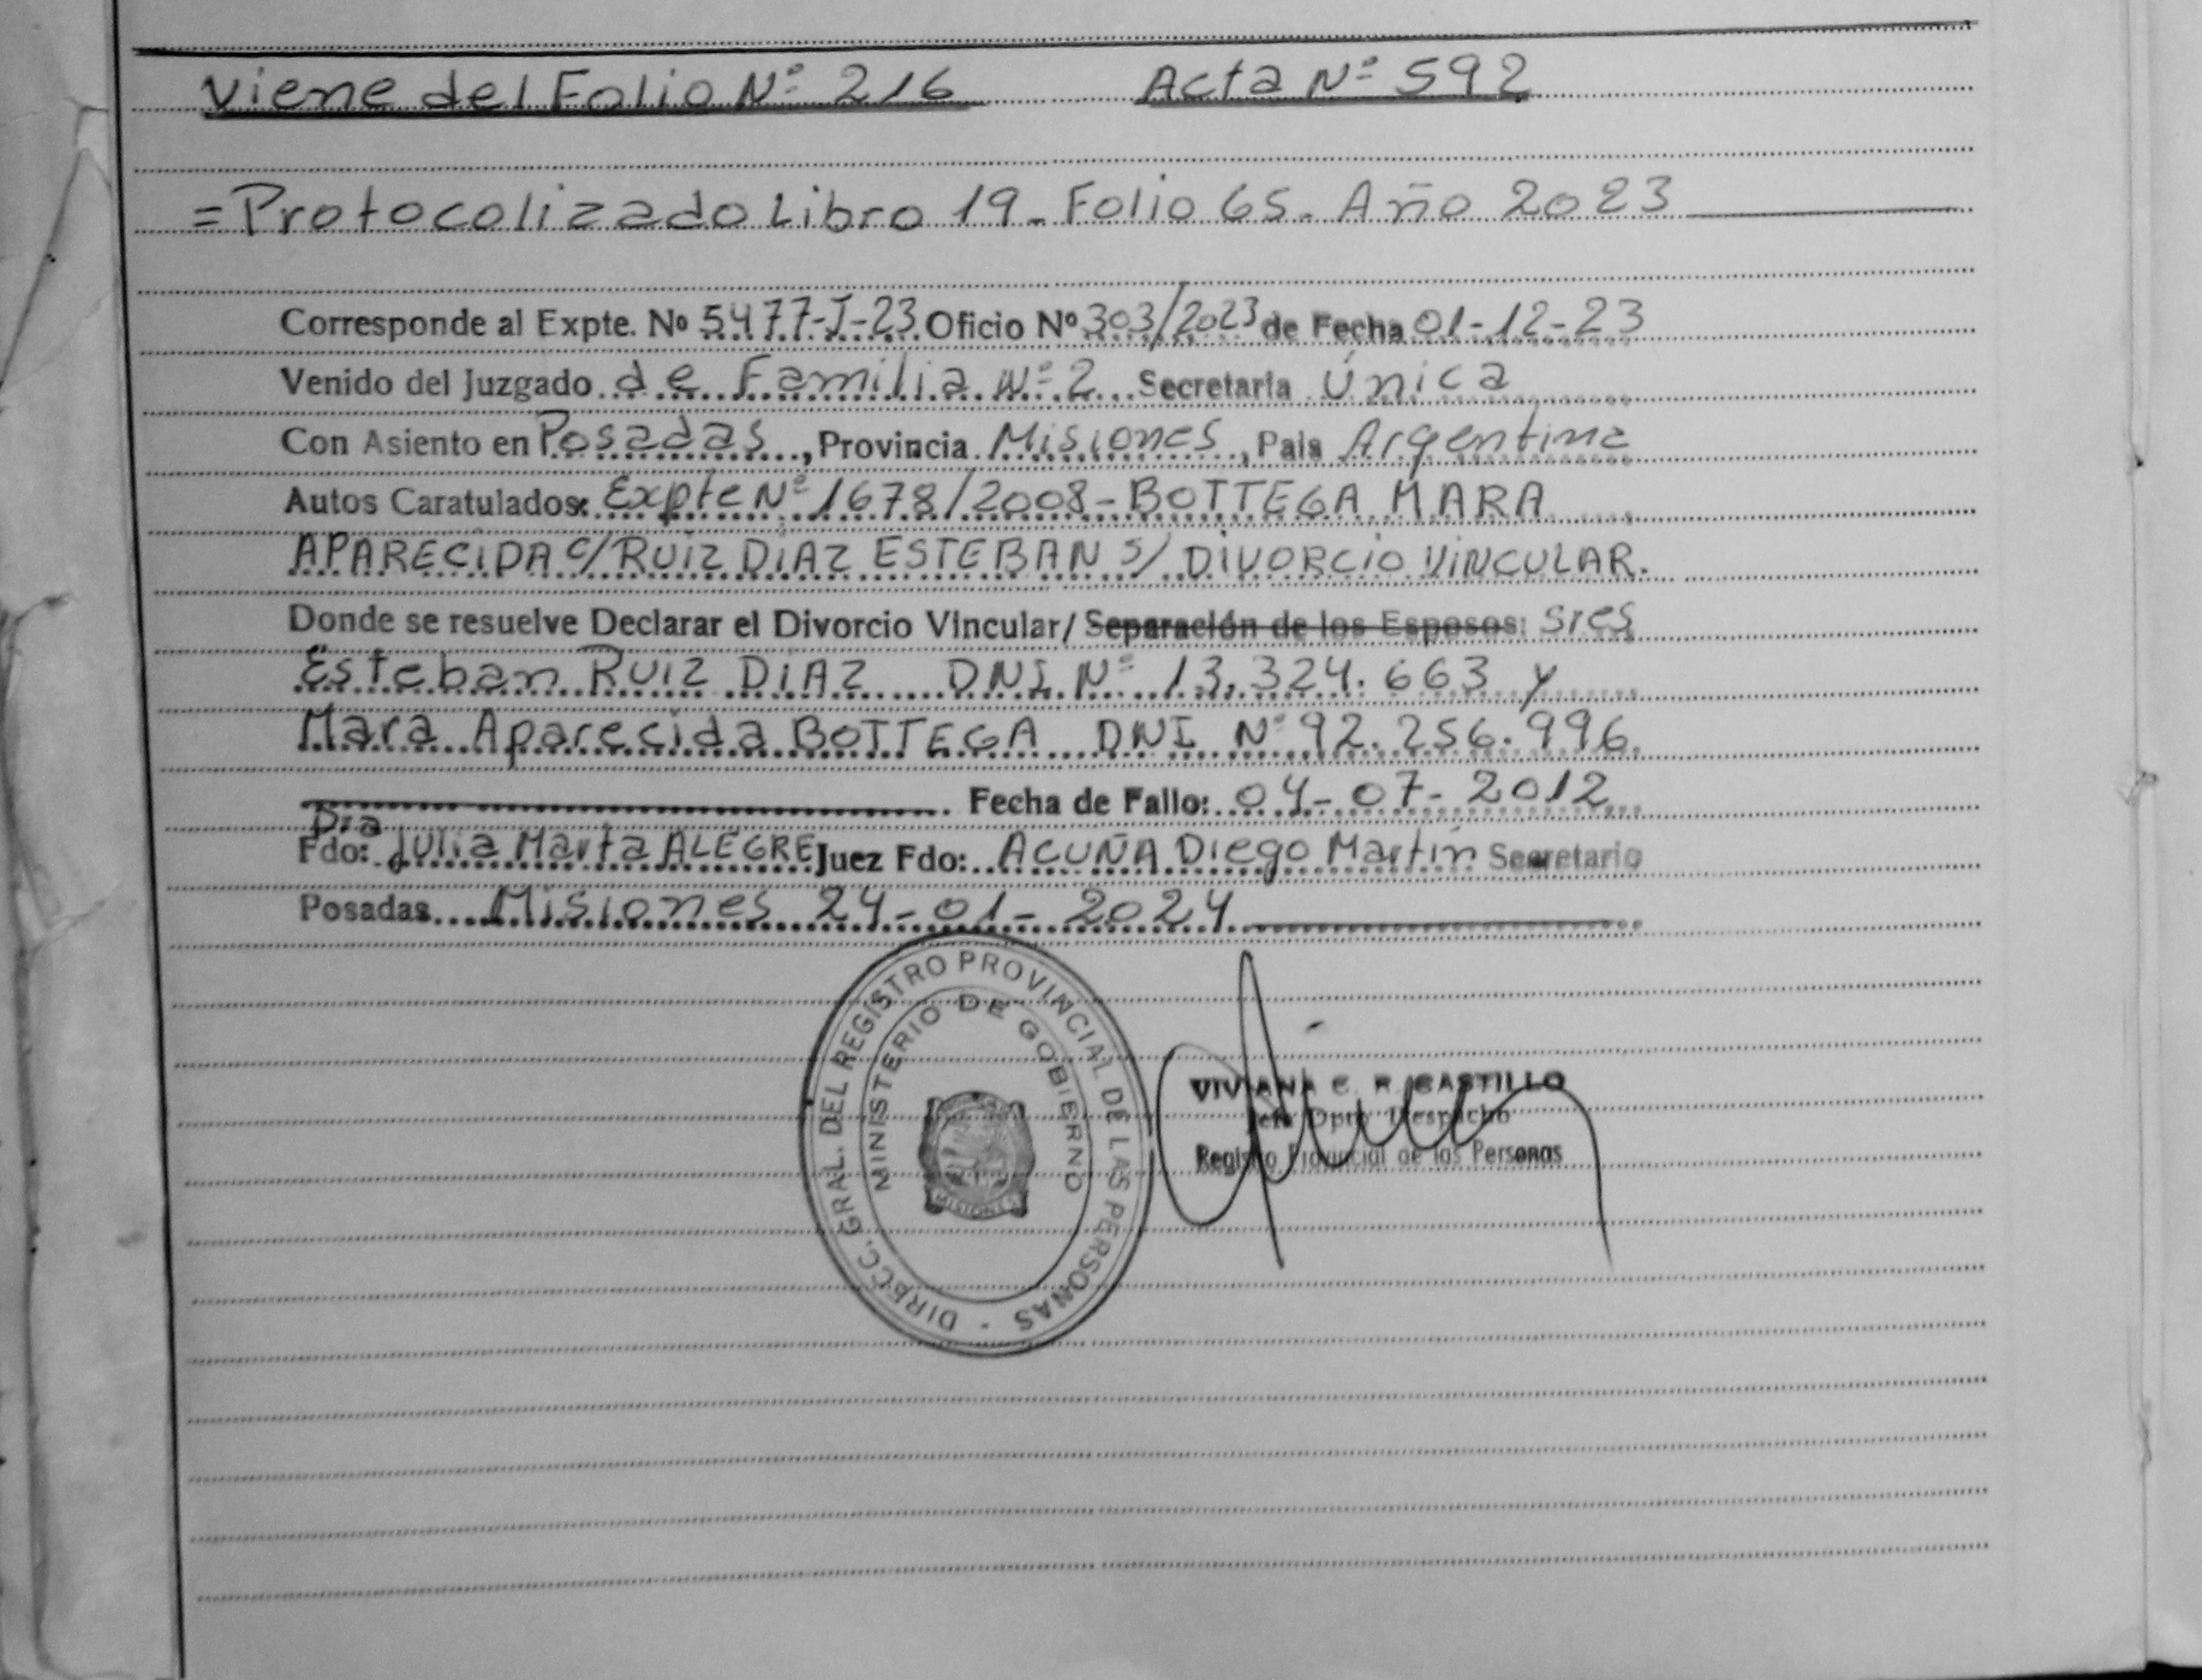 Viene del Folio Nº 216 Acta Nº 592
=Protocolizado Libro 19-Folio 65. Año 2023
Corresponde al Expte. Nº 5477-J-23 Oficio Nº 303/2023 de Fecha 01-12-23
Venido del Juzgado de Familia Nº 2 Secretaria Única
Con Asiento en Posadas, Provincia Misiones, Pais Argentina
Autos Caratulados: Expte Nº 1678/2008-BOTTEGA MARA
APARECIDA c/ RUIZ DIAZ ESTEBAN s/ DIVORCIO VINCULAR.
Donde se resuelve Declarar el Divorcio Vincular/ Separación de los Esposos: Sres
Esteban RUIZ DIAZ DNI Nº 13.324.663 y
Mara Aparecida BOTTEGA DNI Nº 92.256.996
Fecha de Fallo: 04-07-2012
Dra
Fdo: Julia Marta ALEGRE Juez Fdo: ACUÑA Diego Martín Secretario
Posadas Misiones 24-01-2024
DIRECC. GRAL. DEL REGISTRO PROVINCIAL DE LAS PERSONAS -
MINISTERIO DE GOBIERNO
MISIONES
VIVIANA C. R. CASTILLO
Jefe Dpto Despacho
Registro Provincial de las Personas